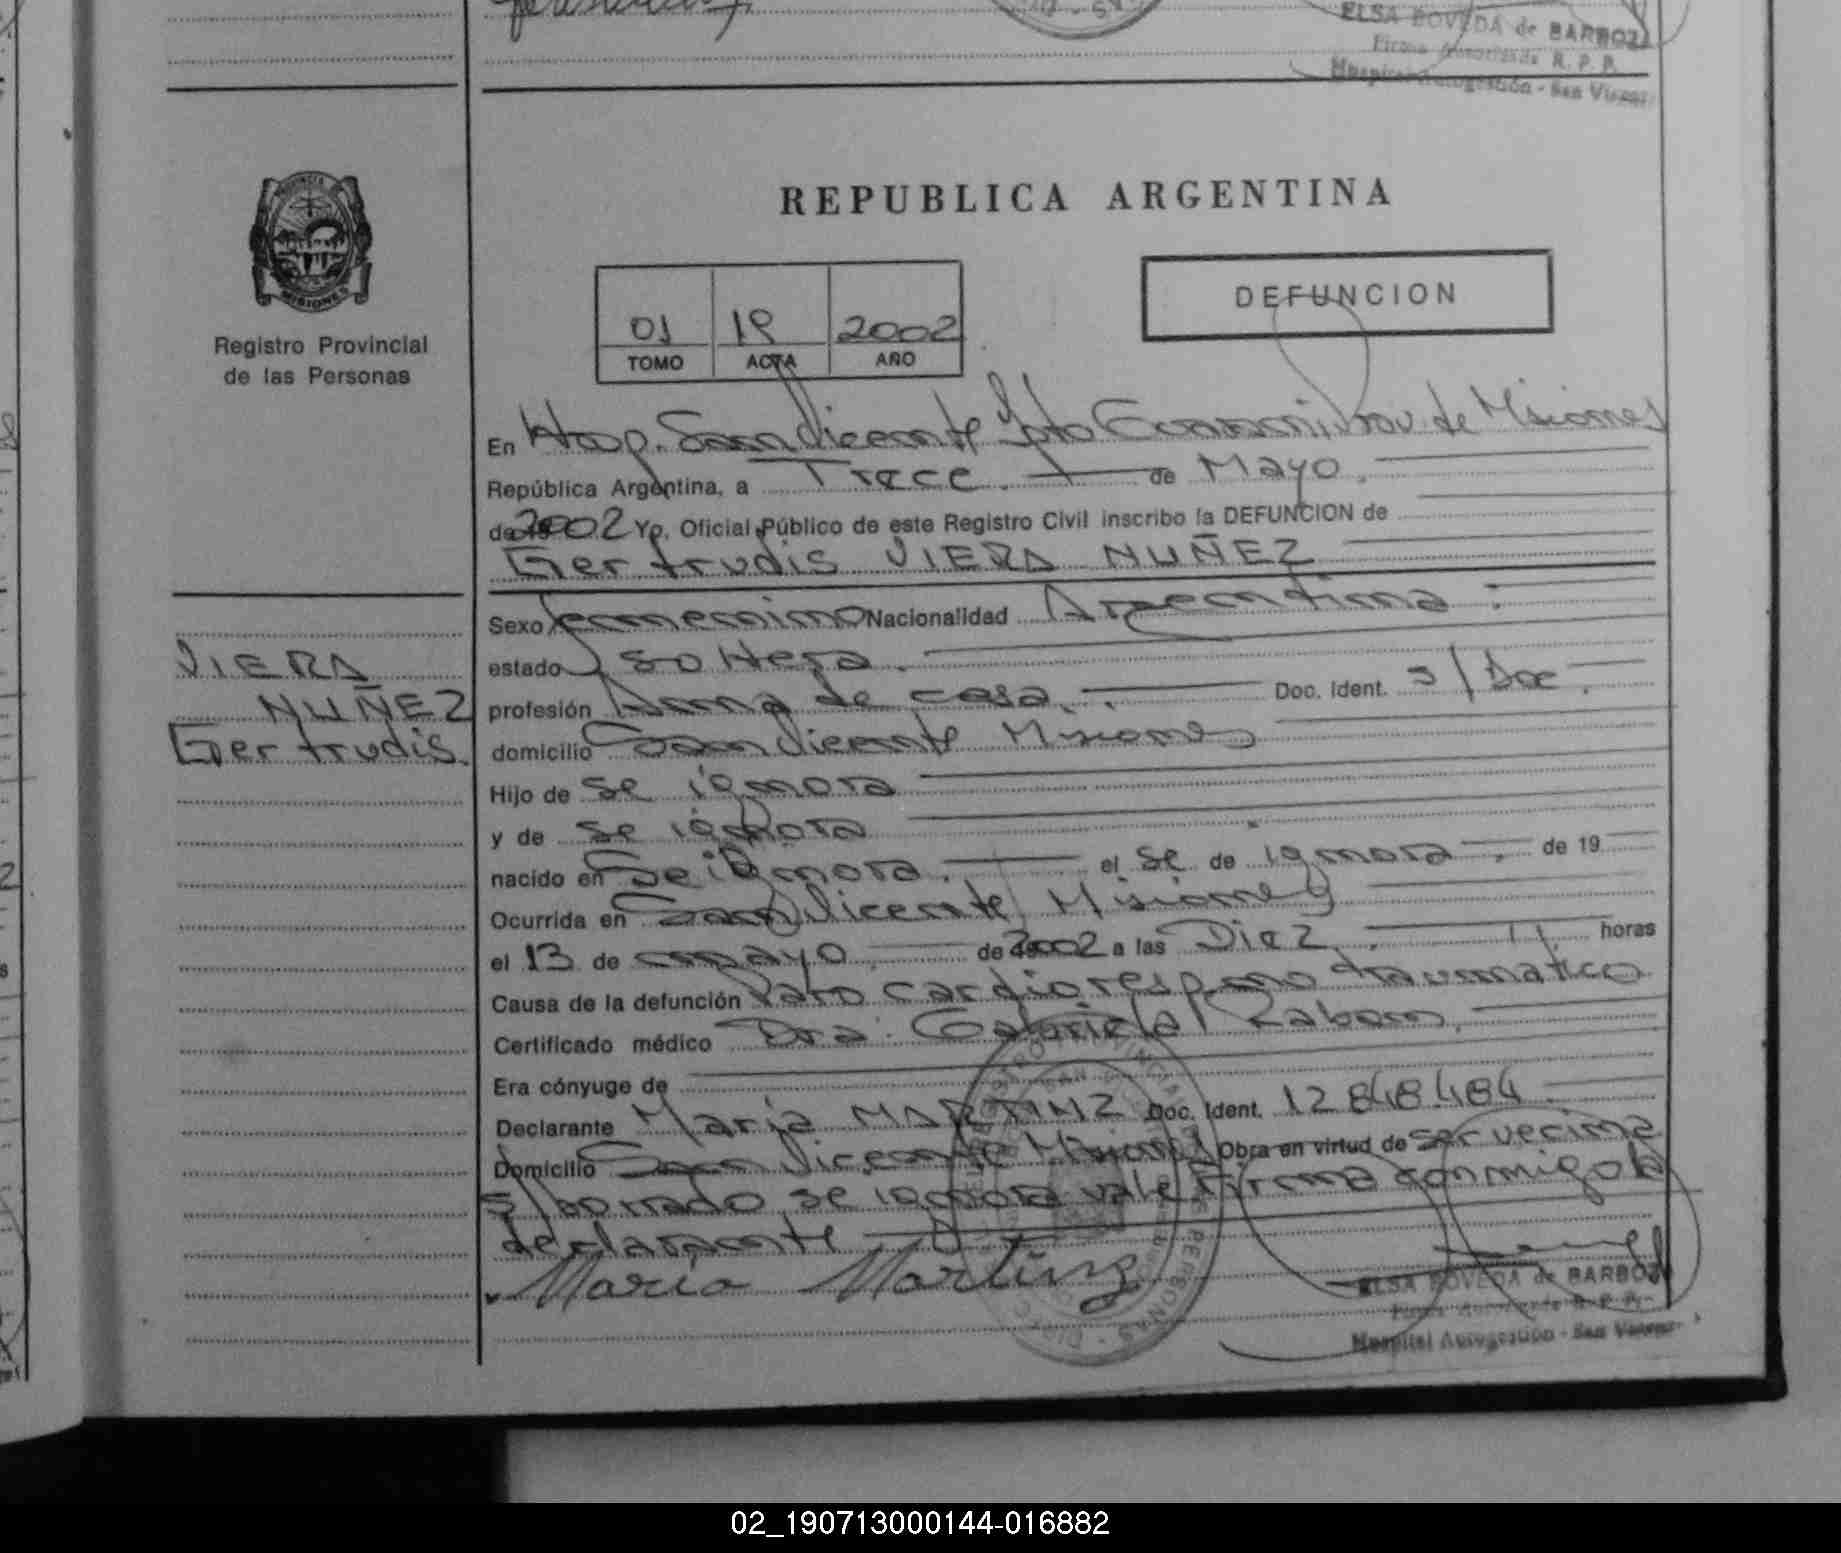 ELSA BOVEDA de BARBOZA
Firma Autorizada R. P. P.
Hospital Autogestión - San Vicente
PROVINCIA DE
MISIONES
Registro Provincial
de las Personas
REPUBLICA ARGENTINA
DEFUNCION
01 19 2002
TOMO ACTA AÑO
En Hosp. San Vicente Dpto Prov. de Misiones
República Argentina, a Trece. de Mayo.
de 2002 Yo, Oficial Público de este Registro Civil inscribo la DEFUNCION de
Gertrudis VIERA NUÑEZ
VIERA
NUÑEZ
Gertrudis.
Sexo femenino Nacionalidad Argentina.
estado soltera.
profesión Ama de casa. Doc. Ident. s/Doc.
domicilio San Vicente Misiones
Hijo de se ignora
y de se ignora
nacido en Se ignora. el se de ignora. de 19
Ocurrida en San Vicente Misiones
el 13 de mayo. de 2002 a las Diez. horas
Causa de la defunción Paro cardioresp no traumatico
Certificado médico Dra. Gabriela
Era cónyuge de
Declarante María MARTINZ Doc. Ident. 12848484
Domicilio San Vicente Misiones Obra en virtud de ser vecina
s/borrado se ignora vale Firma conmigo la
declarante
Maria Martinz
ELSA BOVEDA de BARBOZA
Firma Autorizada R. P. P.
Hospital Autogestión - San Vicente
02_190713000144-016882